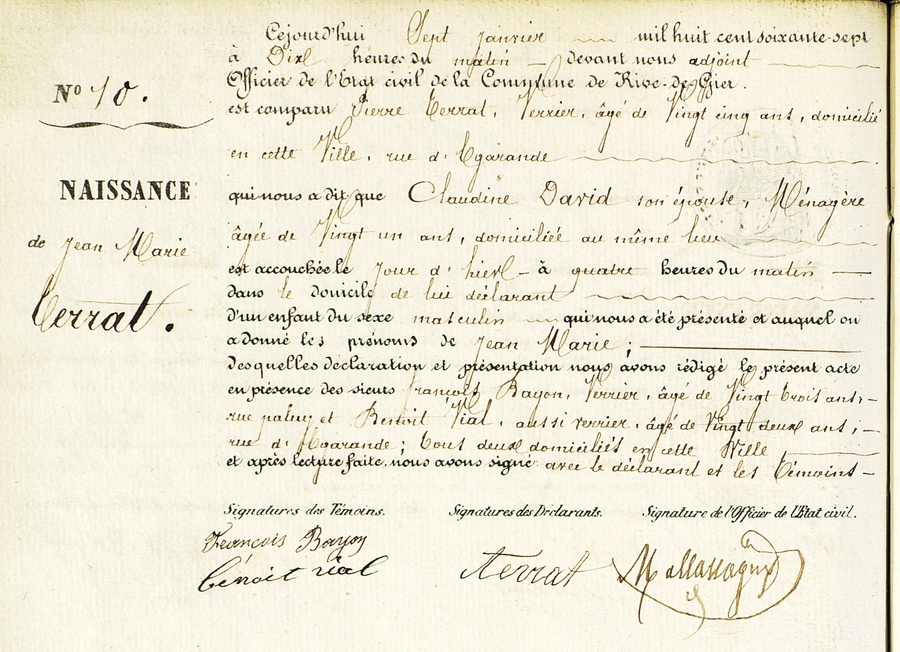 Cejourd'hui Sept janvier mil huit cent soixante-sept
à Dix heures du matin — devant nous adjoint
Officier de l'Etat civil de la Commune de Rive-de-Gier.
est comparu Pierre Terrat, Verrier, âgé de Vingt cinq ans, domicilié
en cette Ville, rue d'Egarande
qui nous a dit que Claudine David son épouse, Ménagère
âgée de Vingt un ans, domiciliée au même lieu
est accouchée le jour d'hier - à quatre heures du matin —
dans le domicile de lui déclarant
d'un enfant du sexe masculin qui nous a été présenté et auquel on
a donné les prénoms de Jean Marie ;
desquelles déclaration et présentation nous avons rédigé le présent acte
en présence des sieurs françois Bayon, Verrier, âgé de Vingt trois ans, -
rue paluy et Benoit Vial, aussi verrier, âgé de Vingt deux ans ; -
rue d'Egarande ; tous deux domiciliés en cette Ville
et après lecture faite, nous avons signé avec le déclarant et les témoins -
No 10.
NAISSANCE
de Jean Marie
Terrat.
Signatures des Témoins.
Signatures des Déclarants.
Signature de l'Officier de l'Etat civil.
François Bayon
bénoit vial
terrat